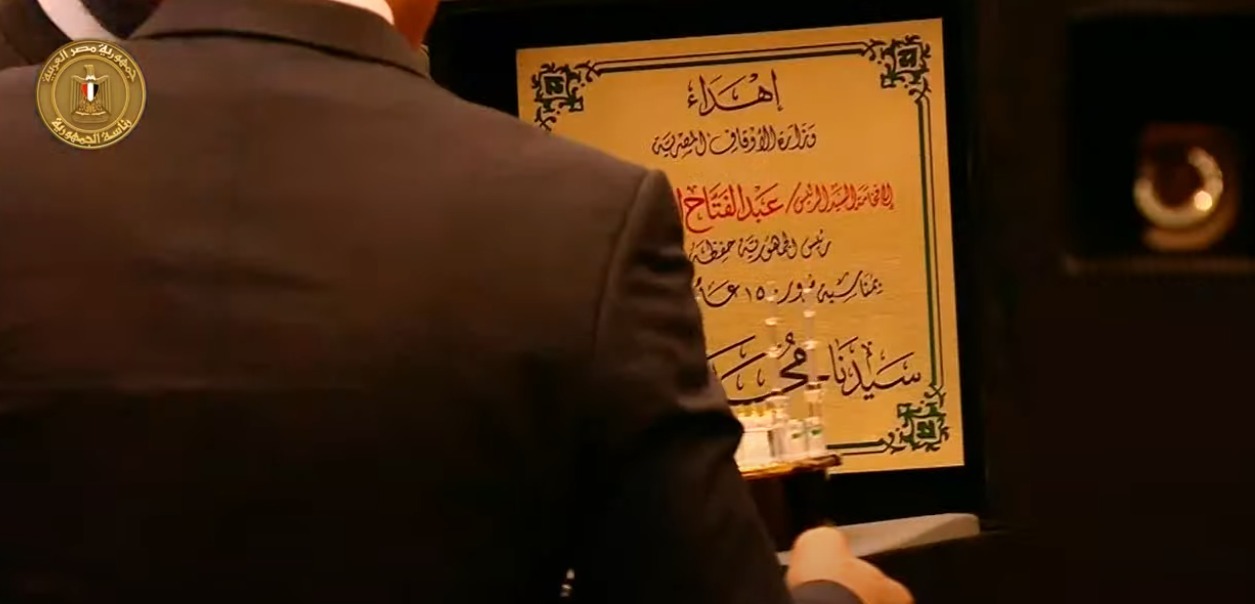 جمهورية مصر العربية
رئاسة الجمهورية
إهداء
وزارة الأوقاف المصرية
إلى فخامة السيد الرئيس / عبد الفتاح
رئيس الجمهورية حفظه
بمناسبة مرور ١٥٠٠ عام
سيدنا